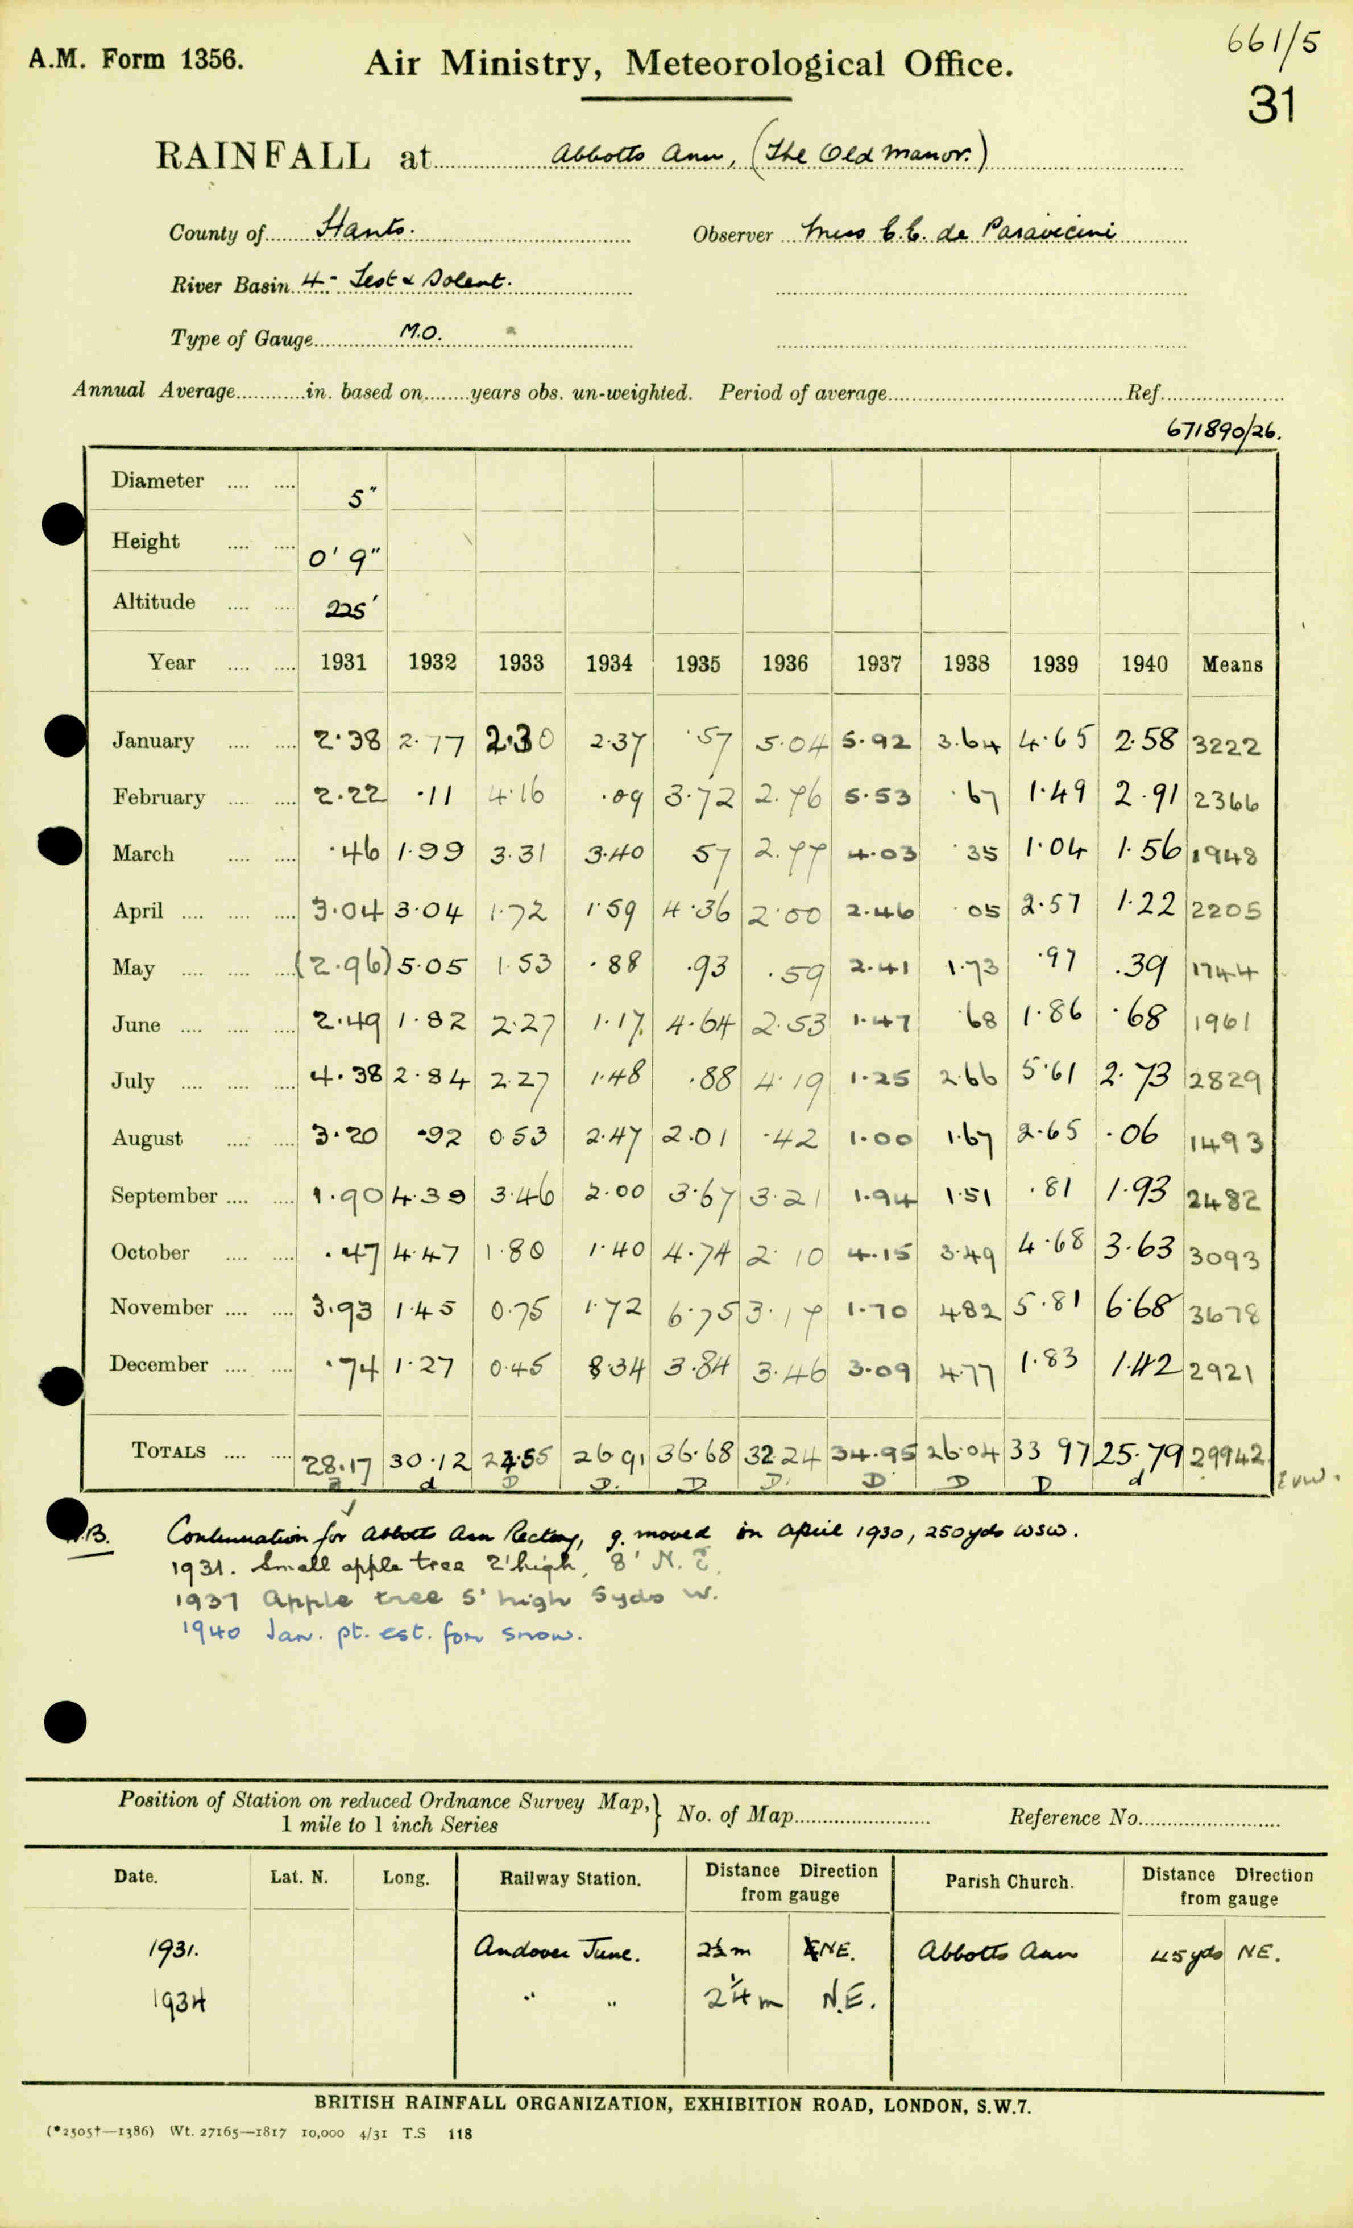 661/5
A.M. Form 1356. Air Ministry, Meteorological Office.
31
RAINFALL at Abbotts Ann, (The Old Manor.)
County of Hants. Observer Miss C.C. de Paravicini
River Basin 4 - Test & Solent.
Type of Gauge M.O.
Annual Average in. based on years obs. un-weighted. Period of average Ref.
671890/26.
Diameter 5"
Height 0' 9"
Altitude 225'
Year 1931 1932 1933 1934 1935 1936 1937 1938 1939 1940 Means
January 2.38 2.77 2.30 2.37 .57 5.04 5.92 3.64 4.65 2.58 3222
February 2.22 .11 4.16 .09 3.72 2.76 5.53 .67 1.49 2.91 2366
March .46 1.99 3.31 3.40 57 2.77 4.03 .35 1.04 1.56 1948
April 3.04 3.04 1.72 1.59 4.36 2.00 2.46 .05 2.57 1.22 2205
May (2.96) 5.05 1.53 .88 .93 .59 2.41 1.73 .97 .39 1744
June 2.49 1.82 2.27 1.17 4.64 2.53 1.47 .68 1.86 .68 1961
July 4.38 2.84 2.27 1.48 .88 4.19 1.25 2.66 5.61 2.73 2829
August 3.20 .92 0.53 2.47 2.01 .42 1.00 1.67 2.65 .06 1493
September 1.90 4.39 3.46 2.00 3.67 3.21 1.94 1.51 .81 1.93 2482
October .47 4.47 1.80 1.40 4.74 2.10 4.15 3.49 4.68 3.63 3093
November 3.93 1.45 0.75 1.72 6.75 3.17 1.70 4.82 5.81 6.68 3678
December .74 1.27 0.45 8.34 3.84 3.46 3.09 4.77 1.83 1.42 2921
TOTALS 28.17 30.12 24.55 26 91 36.68 32.24 34.95 26.04 33 97 25.79 29942
d D D. D D. D D D d
N.B. Continuation for Abbotts Ann Rectory, g. moved in April 1930, 250yds WSW.
1931. Small apple tree 2' high, 8' N.E.
1937 Apple tree 5' high 5yds W.
1940 Jan. pt. est. for snow.
Position of Station on reduced Ordnance Survey Map, 1 mile to 1 inch Series } No. of Map Reference No.
Date. Lat. N. Long. Railway Station. Distance Direction from gauge Parish Church. Distance Direction from gauge
1931. Andover Junc. 2½ m ENE. Abbotts Ann 45yds NE.
1934 " " 2¼ m N.E.
BRITISH RAINFALL ORGANIZATION, EXHIBITION ROAD, LONDON, S.W.7.
(*2505†—1386) Wt. 27165—1817 10,000 4/31 T.S 118